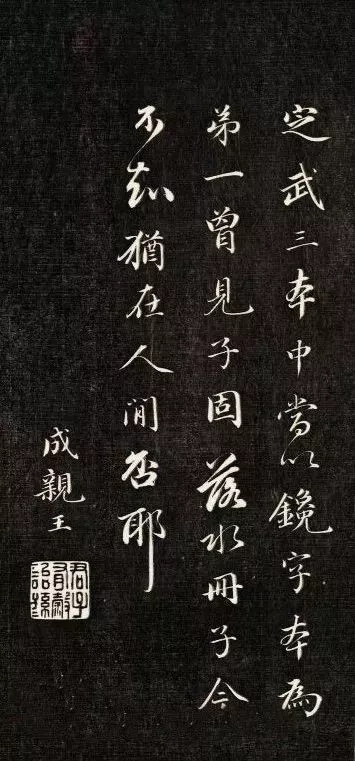 定武三本中當以鑱字本為
弟一曾見子固落水冊子今
不知猶在人間否耶
成親王